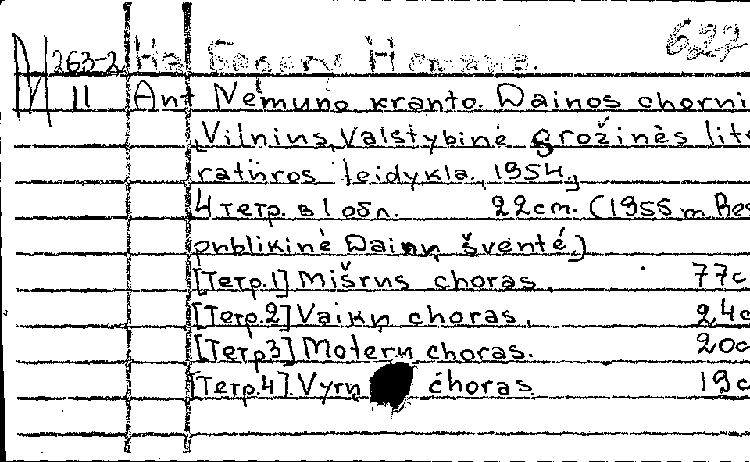 622
М 263-2 На берегу Немана.
11 Ant Nemuno kranto. Dainos chorni
Vilnius, Valstybinė grožinės lite
ratūros leidykla, 1954.
4 тетр. в 1 обл. 22 cm. (1955 m Res
publikinė Dainų šventė.)
[Тетр.1] Mišrus choras. 77 с
[Тетр.2] Vaikų choras. 24 с
[Тетр3] Moterų choras. 20 с
[Тетр.4] Vyrų choras 19 с